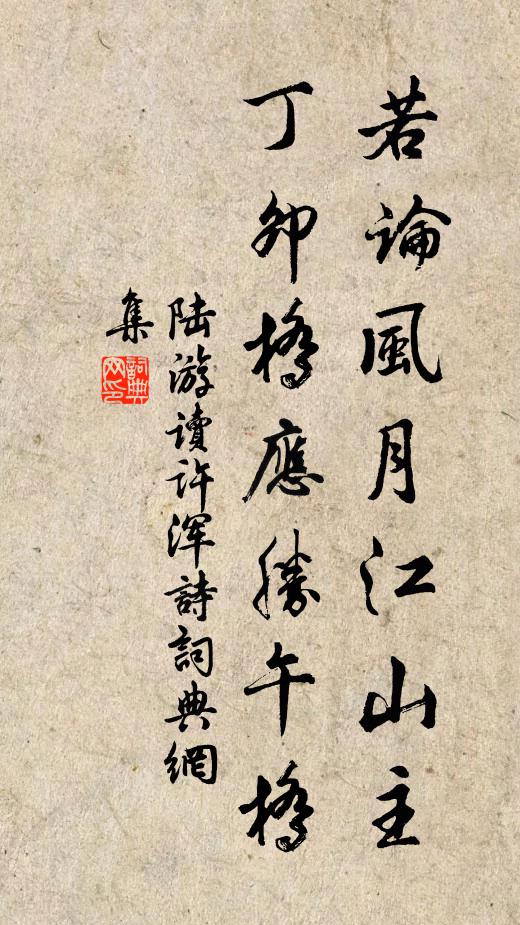 若論風月江山主
丁卯橋應勝午橋
陸游讀許渾詩詞典網
集
詞典
网印